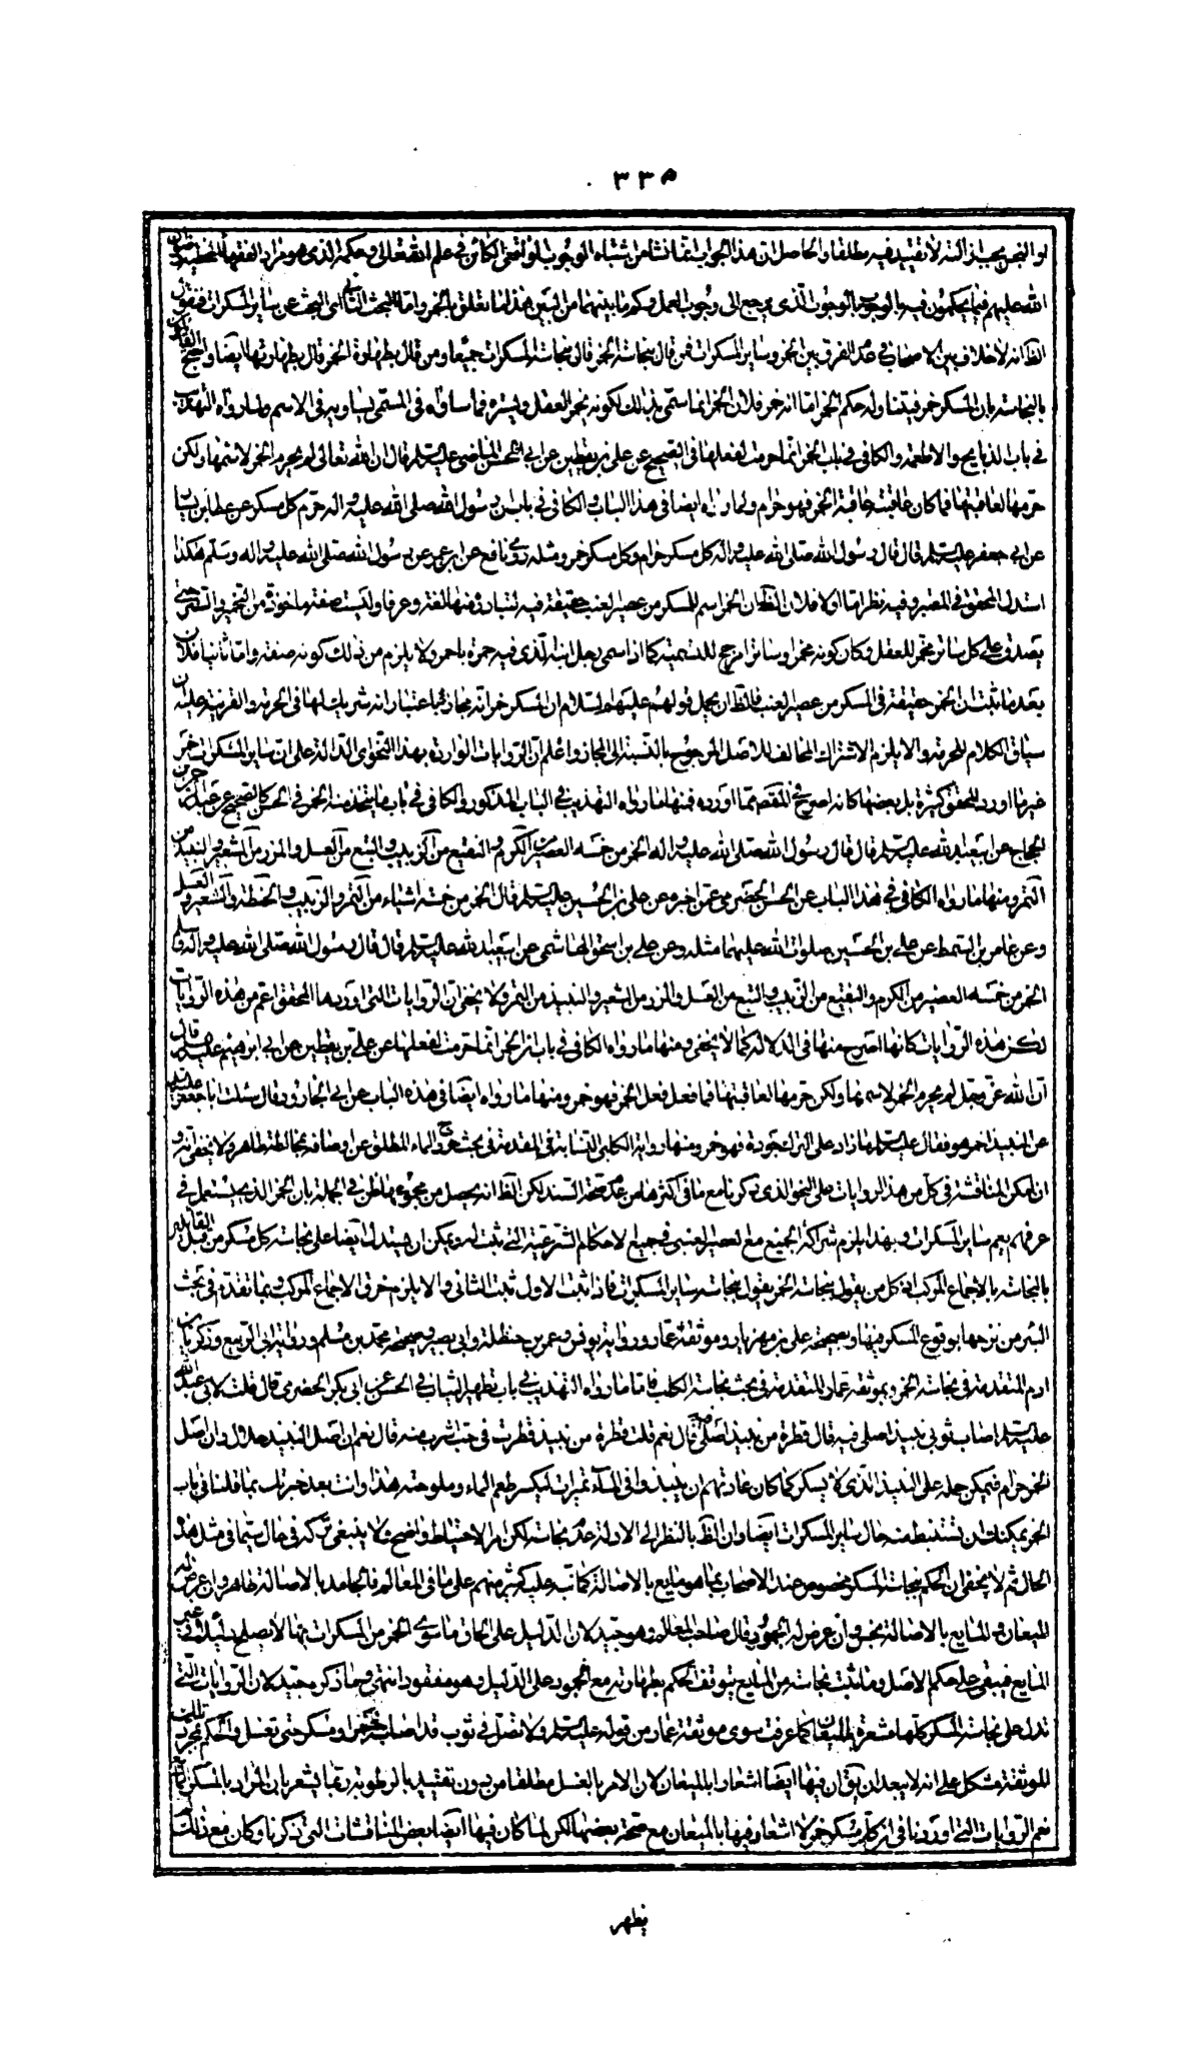 ٣٣٥
لو النجس يجب ازالته لا تقييد فيه مطلقا والحاصل ان هذا الجواب انما نشا من اشتباه الوجوب الواقعى الكائن فى علم الله تعالى وحكمه الذى هو مراد الفقهاء المخطئة رضوان
الله عليهم فيما يحكمون فيه بالوجوب بالوجوب الذى يرجع الى وجوب العمل وكم ما بينهما من البين هذا ما تعلق بالخمر واما البحث الثانى اى البحث عن ساير المسكرات فنقول
الظ انه لا خلاف بين الاصحاب فى عدم الفرق بين الخمر وساير المسكرات فمن قال بنجاسة الخمر قال بنجاسة المسكرات جميعا ومن قال بطهارة الخمر قال بطهارتها ايضا واحتج القائلون
بالنجاسة بان المسكر خمر فيتناوله حكم الخمر اما انه خمر فلان الخمر انما سمى بذلك لكونه يخمر العقل ويستره فما ساواه فى المسمى يساويه فى الاسم ولما رواه التهذيب
فى باب الذبايح والاطعمة والكافى فى باب ان الخمر انما حرمت لفعلها فى الصحيح عن على بن يقطين عن ابى الحسن الماضى عليه السلم قال ان الله تعالى لم يحرم الخمر لاسمها ولكن
حرمها لعاقبتها فما كان عاقبته عاقبة الخمر فهو حرام ولما رواه ايضا فى هذا الباب والكافى فى باب ان رسول الله صلى الله عليه واله حرم كل مسكر عن عطا بن يسار
عن ابى جعفر عليه السلم قال قال رسول الله صلى الله عليه واله كل مسكر حرام وكل مسكر خمر ومثله روى نافع عن ابن عمر عن رسول الله صلى الله عليه واله وسلم هكذا
استدل المحقق فى المعتبر وفيه نظر اما اولا فلان الظ ان الخمر اسم للمسكر من عصير العنب حقيقة فيه لتبادره منها لغة وعرفا وليست صفة ماخوذة من التخمير والستر حتى
يصدق على كل ساتر مخمر للعقل وكان كونه مخمرا وساترا مرجح للتسمية كما اذا سمى رجل ابنه الذى فيه حمرة باحمر ولا يلزم من ذلك كونه صفة واما ثانيا فلان
بعد ما ثبت ان الخمر حقيقة فى المسكر من عصير العنب فالظ ان يحمل قولهم عليهم السلام ان المسكر خمر انه مجاز فيه باعتبار انه شريك لها فى الحرمة والقرينة عليه ان
سياق الكلام للحرمة والا يلزم الاشتراك المخالف للاصل المرجوح بالنسبة الى المجاز واعلم ان الروايات الواردة بهذا النحو اى الدالة على ان ساير المسكرات خمر
غير ما اورده المحقق كثيرة بل بعضها كانه اصرح فى المقصد مما اورده فمنها ما رواه التهذيب فى الباب المذكور والكافى فى باب ما يتخذ منه الخمر فى الحسن كالصحيح عن عبد الرحمن بن
الحجاج عن ابى عبد الله عليه السلم قال قال رسول الله صلى الله عليه واله الخمر من خمسة العصير من الكرم والنقيع من الزبيب والبتع من العسل والمزر من الشعير والنبيذ من
التمر ومنها ما رواه الكافى فى هذا الباب عن الحسن الحضرمى عمن اخبره عن على بن الحسين عليه السلم قال الخمر من خمسة اشياء من التمر والزبيب والحنطة والشعير والعسل
وعن عامر بن السمط عن على بن الحسين صلوات الله عليهما مثله وعن على بن اسحق الهاشمى عن ابى عبد الله عليه السلم قال قال رسول الله صلى الله عليه واله وسلم
الخمر من خمسة العصير من الكرم والنقيع من الزبيب والبتع من العسل والمزر من الشعير والنبيذ من التمر ولا يخفى ان الروايات التى اوردها المحقق اعم من هذه الروايات
لكن هذه الروايات كانها اصرح منها فى الدلالة كما لا يخفى ومنها ما رواه الكافى فى باب ان الخمر انما حرمت لفعلها عن على بن يقطين عن ابى ابراهيم عليه السلم قال
ان الله عز وجل لم يحرم الخمر لاسمها ولكن حرمها لعاقبتها فما فعل فعل الخمر فهو خمر ومنها ما رواه ايضا فى هذه الباب عن ابى الجارود قال سئلت ابا جعفر عليه السلم
عن النبيذ اخمر هو فقال عليه السلم ما زاد على الترك جودة فهو خمر ومنها رواية الكلبى النسابة المتقدمة فى بحث خروج الماء المطلق عن اوصافه بمخالطة طاهر ولا يخفى انه و
ان امكن المناقشة فى كل من هذه الروايات على النحو الذى ذكرنا مع ما فى اكثرها من عدم صحة السند لكن الظ انه يحصل من مجموعها ظن فى الجملة بان الخمر الذى يستعمل فى
عرفهم يعم ساير المسكرات وبهذا يلزم شراكة الجميع مع العصير العنبى فى جميع الاحكام الشرعية التى ثبت له ويمكن ان يستدل ايضا على نجاسة كل مسكر من قبل القائلين
بالنجاسة بالاجماع المركب اذ كل من يقول بنجاسة الخمر يقول بنجاسة ساير المسكرات فاذا ثبت الاول ثبت الثانى والا يلزم خرق الاجماع المركب وبما تقدم فى بحث
البئر من نزحها بوقوع المسكر فيها وبصحيحة على بن مهزيار وموثقة عمار ورواية يونس وعمر بن حنظلة وابى بصير وصحيحة محمد بن مسلم ورواية ابى الربيع وزكريا بن
ادم المتقدمة فى نجاسة الخمر وبموثقة عمار المتقدمة فى بحث نجاسة الكلب فاما ما رواه التهذيب فى باب تطهير الثياب فى الحسن عن ابى بكر الحضرمى قال قلت لابى عبد الله
عليه السلم اصاب ثوبى نبيذ اصلى فيه قال نعم قلت قطرة من نبيذ قطرت فى حب اشرب منه قال نعم ان اصل النبيذ حلال وان اصل
الخمر حرام فيمكن حمله على النبيذ الذى لا يسكر كما كان عادتهم ان ينبذوا فى الماء تميرات ليكسر طعم الماء وملوحته هذا وانت بعد خبرتك بما قلنا فى باب
الخمر يمكنك ان تستنبط منه حال ساير المسكرات ايضا وان الظ بالنظر الى الادلة عدم نجاسته لكن امر الاحتياط واضح ولا ينبغى تركه فى حال سيما فى مثل هذه
الحال ثم لا يخفى ان الحكم بنجاسة المسكر مخصوص عند الاصحاب بما هو مايع بالاصالة كما نبه عليه كثير منهم على ما فى المعالم فالجامد بالاصالة طاهر وان عرض له
الميعان والمايع بالاصالة نجس وان عرض له الجمود قال صاحب المعالم وهو جيد لان الدليل على الحاق ما سوى الخمر من المسكرات بها لا يصلح دليلا فى غير
المايع فيبقى على حكم الاصل وما ثبت نجاسته من المايع يتوقف الحكم بطهارته مع الجمود على الدليل وهو مفقود انتهى وما ذكره جيد لان الروايات التى
تدل على نجاسة المسكر كلها مشعرة بالميعان كما عرفت سوى موثقة عمار من قوله عليه السلم ولا تصل فى ثوب قد اصابه خمر او مسكر حتى تغسل والحكم بمجرد تلك
الموثقة مشكل على انه لا يبعد ان يق ان فيها ايضا اشعارا بالميعان لان الامر بالغسل مطلقا من دون تقييد بالرطوبة ربما يشعر بان المراد بالمسكر المايع
نعم الروايات التى اوردنا فى ان كل مسكر خمر لا اشعار فيها بالميعان مع صحة بعضها لكن لما كان فيها ايضا بعض المناقشات التى ذكرنا وكان مع ذلك
يظهر